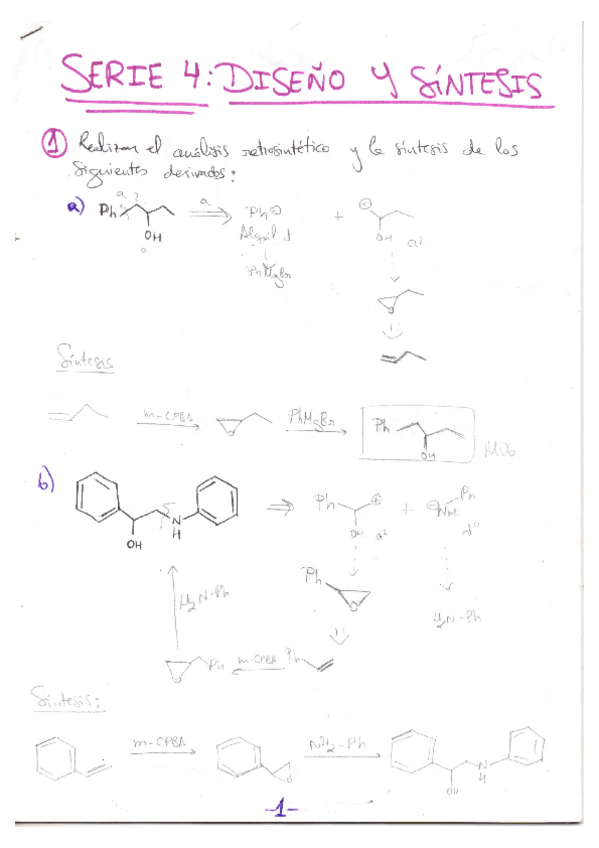 SERIE 4: DISEÑO Y SÍNTESIS
① Realizar el análisis retrosintético y la síntesis de los
siguientes derivados:
a) Ph OH a ⇒ Ph⊖ + ⊕ OH a²
Alquil d
PhMgBr
Síntesis
m-CPBA PhMgBr Ph OH
b) N H OH ⇒ Ph ⊕ OH a² + ⊖NH Ph d°
Ph O
H₂N-Ph H₂N-Ph
O Ph m-CPBA Ph
Síntesis:
m-CPBA O NH₂-Ph OH N H
-1-